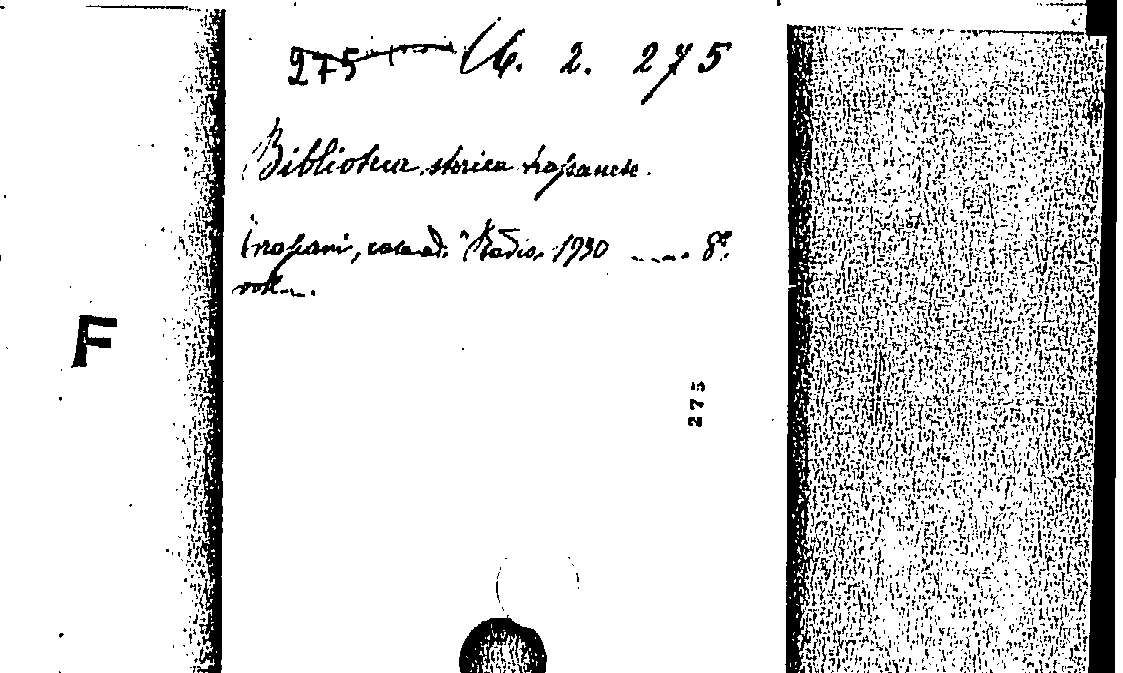 275 U. 2. 275
Biblioteca storica trapanese.
Trapani, casa ed. "Radio, 1930 ..... 8º.
voll....
F
275